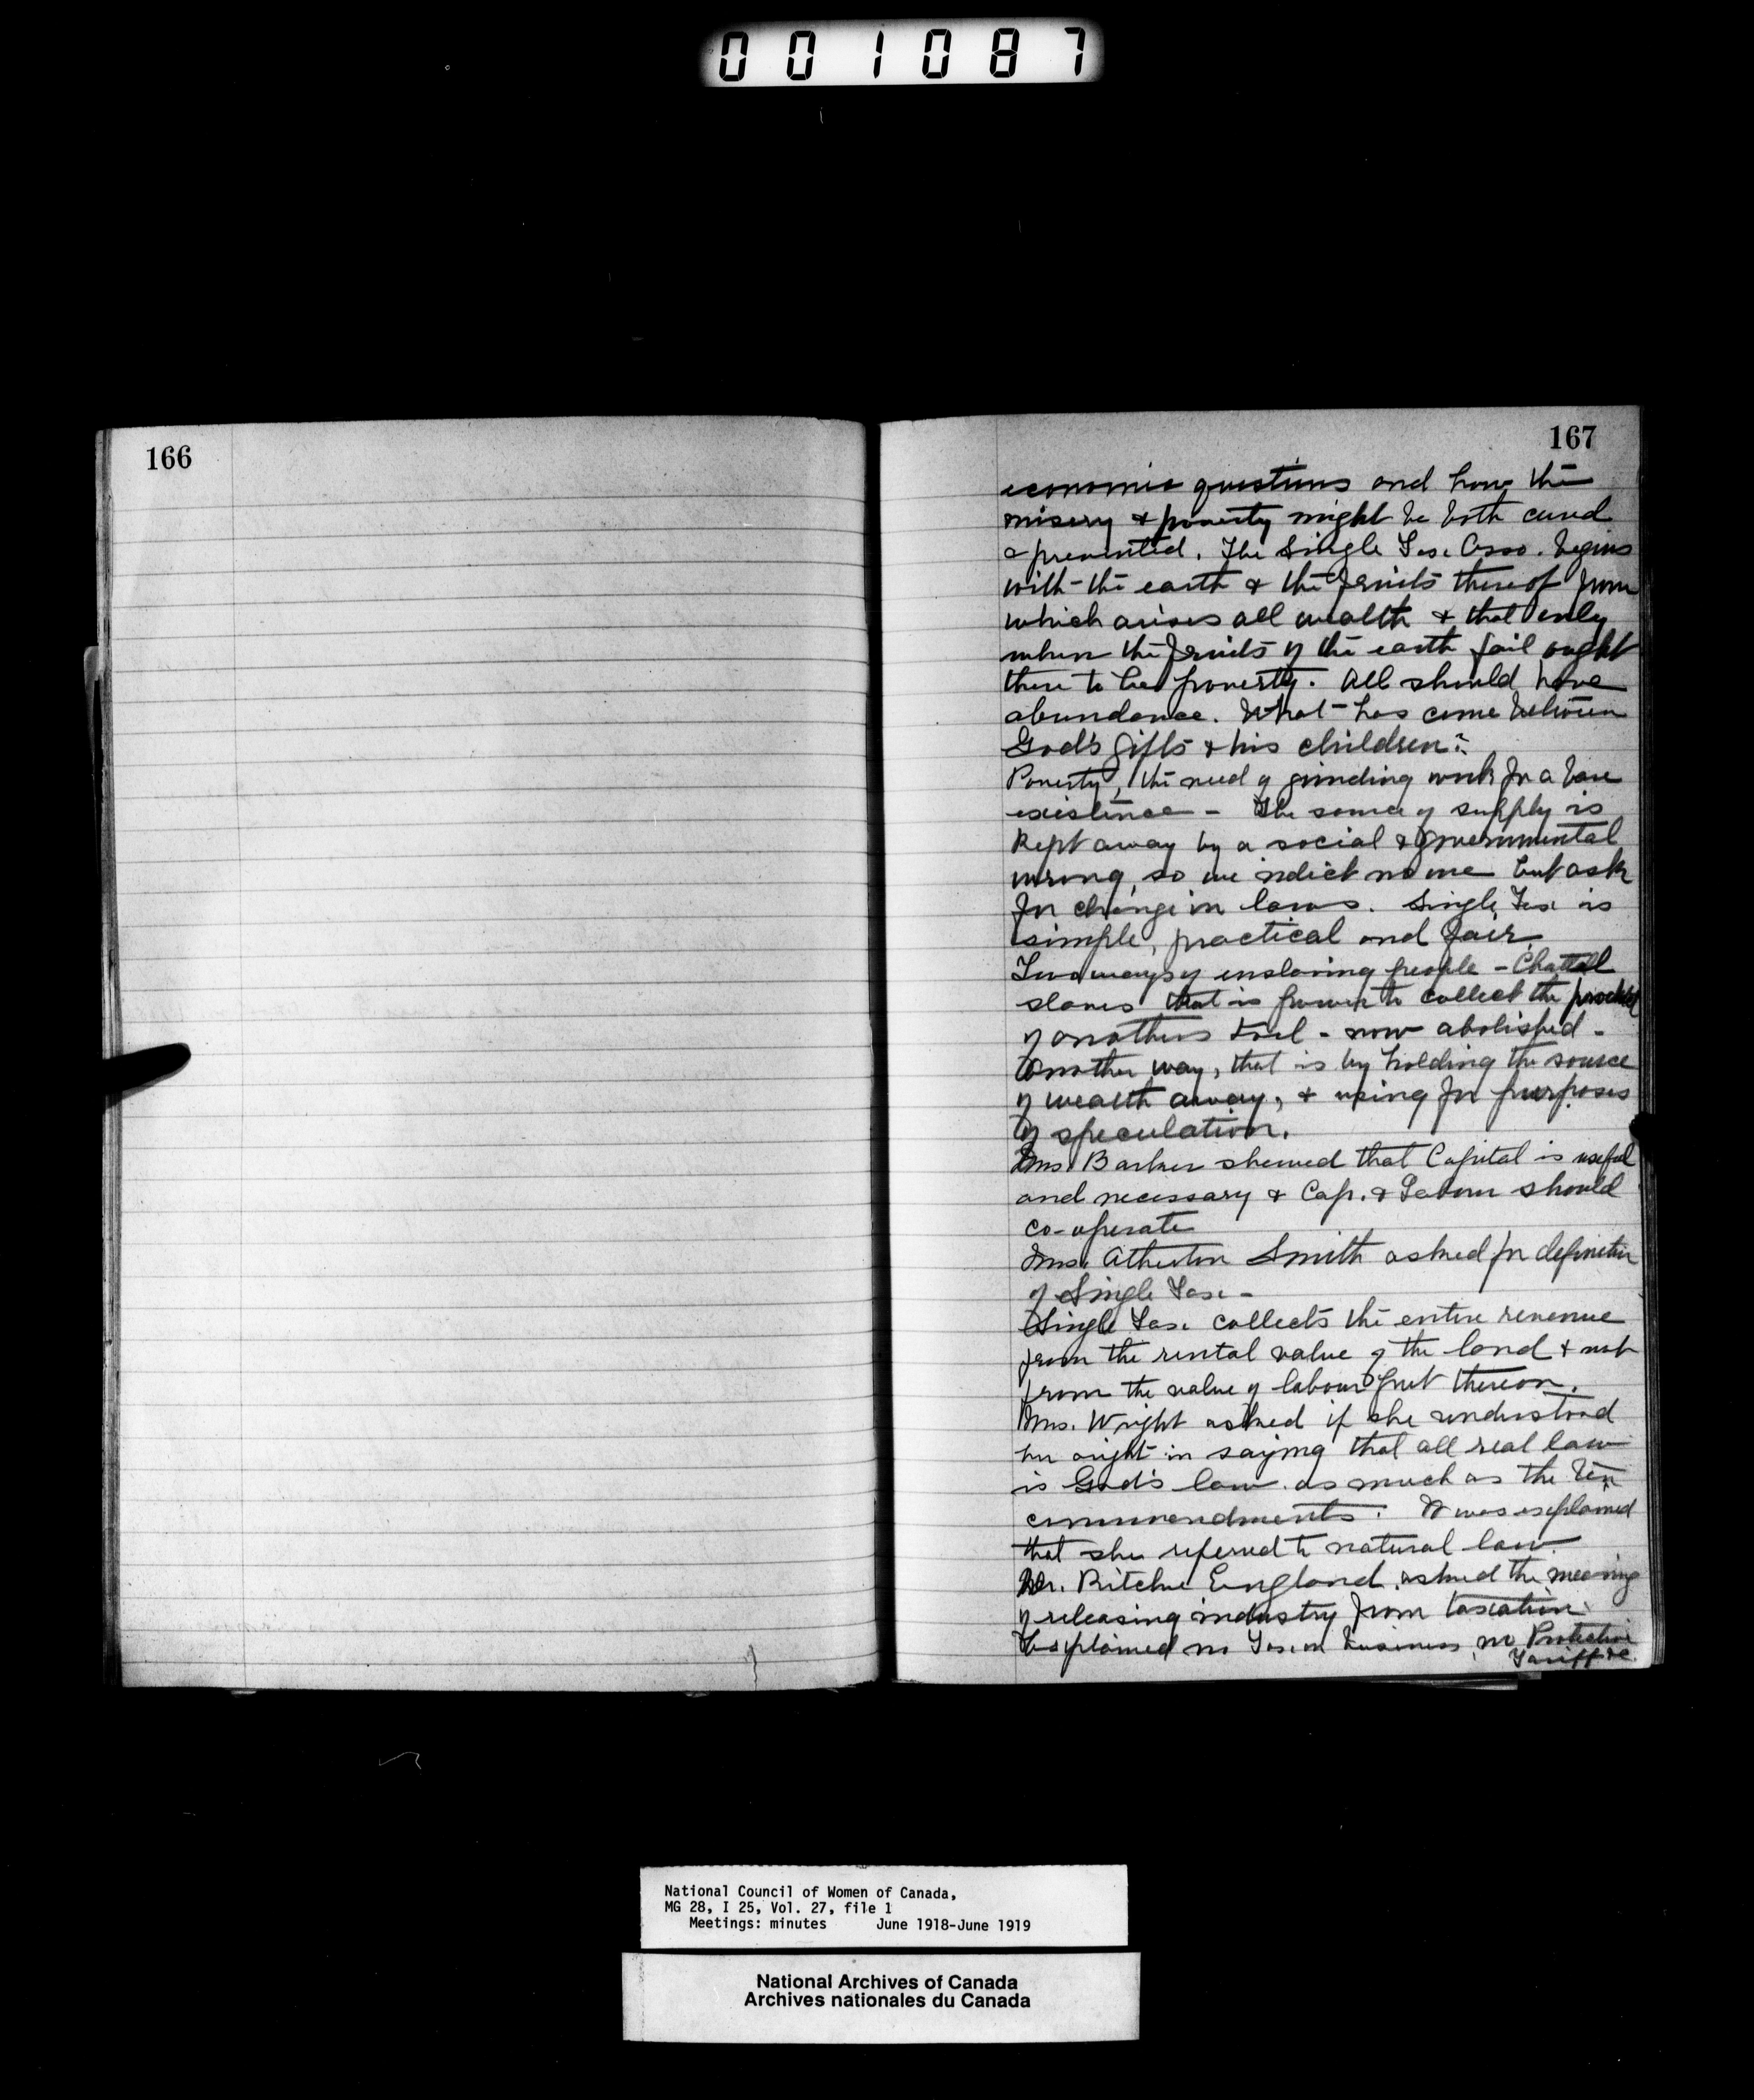 001087
166
167
economic questions and how the
misery & poverty might be both cured
& prevented. The Single Tax Asso. begins
with the earth & the fruits thereof from
which arises all wealth & that only
when the fruits of the earth fail ought
there to be poverty. All should have
abundance. What has come between
God's gifts & his children?
Poverty, the need of grinding work for a bare
existence - The source of supply is
kept away by a social & governmental
wrong, so we indict no one but ask
for change in laws. Single Tax is
simple, practical and fair.
Two ways of enslaving people - Chattell
slaves that is power to collect the product
of anothers toil - now abolished -
Another way, that is by holding the source
of wealth away, & using for purposes
of speculation.
Mrs. Barker shewed that Capital is useful
and necessary & Cap. & Labour should
co-operate
Mrs. Atherton Smith asked for definition
of Single Tax -
Single Tax collects the entire revenue
from the rental value of the land & not
from the value of labour put thereon.
Mrs. Wright asked if she understood
her aright in saying that all real law
is God's law as much as the ten
commendments. It was explained
that she referred to natural law.
Dr. Ritchie England asked the meaning
of releasing industry from taxation
Explained no Tax on business, no Protective
Tariff &c.
National Council of Women of Canada,
MG 28, I 25, Vol. 27, file 1
Meetings: minutes June 1918-June 1919
National Archives of Canada
Archives nationales du Canada